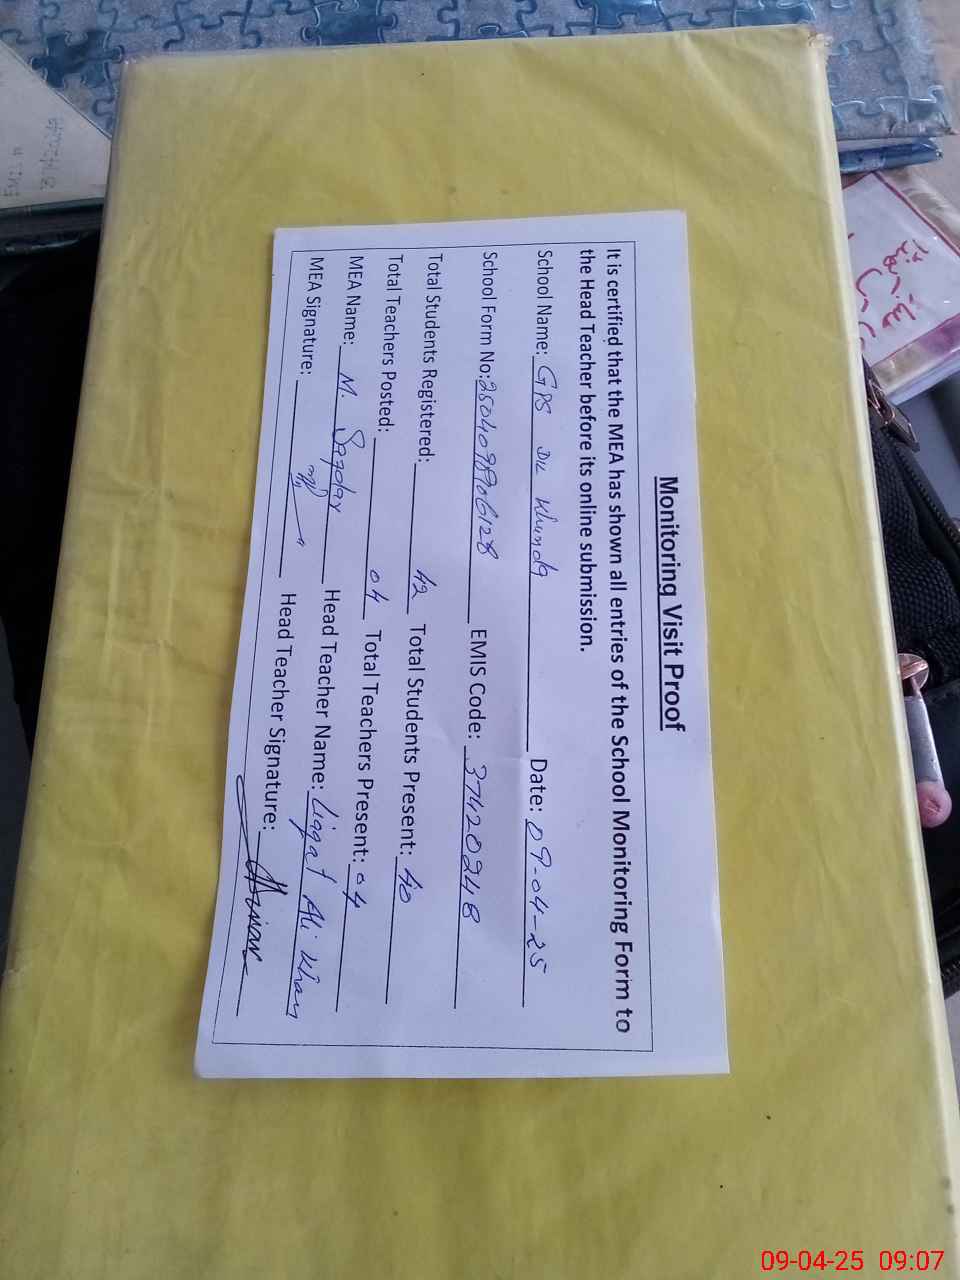 Monitoring Visit Proof
It is certified that the MEA has shown all entries of the School Monitoring Form to
the Head Teacher before its online submission.
School Name: GPS Dk Khunda Date: 09-04-25
School Form No: 2504098906128 EMIS Code: 37420248
Total Students Registered: 42 Total Students Present: 40
Total Teachers Posted: 04 Total Teachers Present: 04
MEA Name: M. Safdar Head Teacher Name: Liaqat Ali Khan
MEA Signature: Head Teacher Signature:
09-04-25 09:07